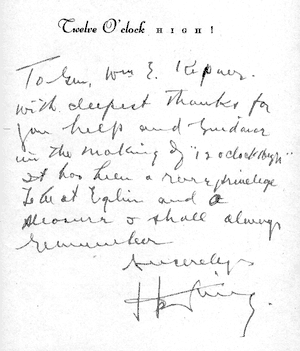 Twelve O'clock HIGH!
To Gen. Wm E. Kepner.
with deepest thanks for
you help and Guidance
in the making of "12 oclock High"
It has been a rare privilege
To be at Eglin and a
pleasure I shall always
remember
Sincerely